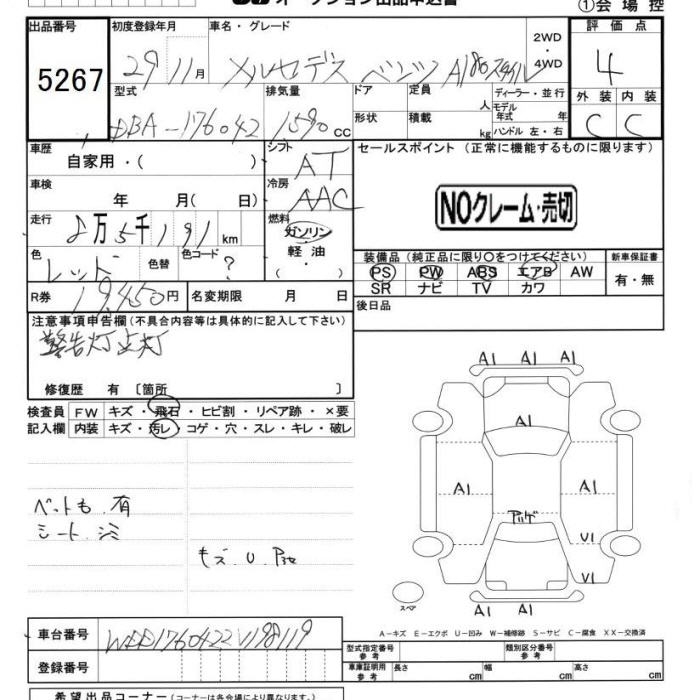 オークション出品申込書
①会場控
出品番号 5267
初度登録年月 29 11月
車名・グレード メルセデス ベンツ A180 スタイル
2WD・4WD
評価点 4
外装 C 内装 C
型式 DBA-176042
排気量 1590 CC
ドア 形状
定員 人
積載 kg
ディーラー・並行
モデル年式 年
ハンドル 左・右
車歴 自家用・( )
シフト AT
セールスポイント (正常に機能するものに限ります)
NOクレーム・売切
車検 年 月( 日)
冷房 AAC
走行 8万5千191km
燃料 ガソリン・軽油・
色 レッド 色替 色コード ?
装備品 (純正品に限り○をつけてください)
PS PW ABS エアB AW
SR ナビ TV カワ
新車保証書 有・無
R券 19,450円
名変期限 月 日
後日品
注意事項申告欄(不具合内容等は具体的に記入して下さい)
警告灯点灯
修復歴 有 〔箇所 〕
検査員記入欄
FW キズ・飛石・ヒビ割・リペア跡・×要
内装 キズ・汚レ・コゲ・穴・スレ・キレ・破レ
シート シミ
キズ U
A1 A1 A1
A1
A1 A1 A1 A1
U1
U1
A1 A1
スペア
A-キズ E-エクボ U-凹み W-補修跡 S-サビ C-腐食 XX-交換済
車台番号 WDD1760422V198119
登録番号
型式指定番号 参考
類別区分番号 参考
車庫証明用 参考 長さ cm 幅 cm 高さ cm
希望出品コーナー(コーナーは各会場により異なります。)